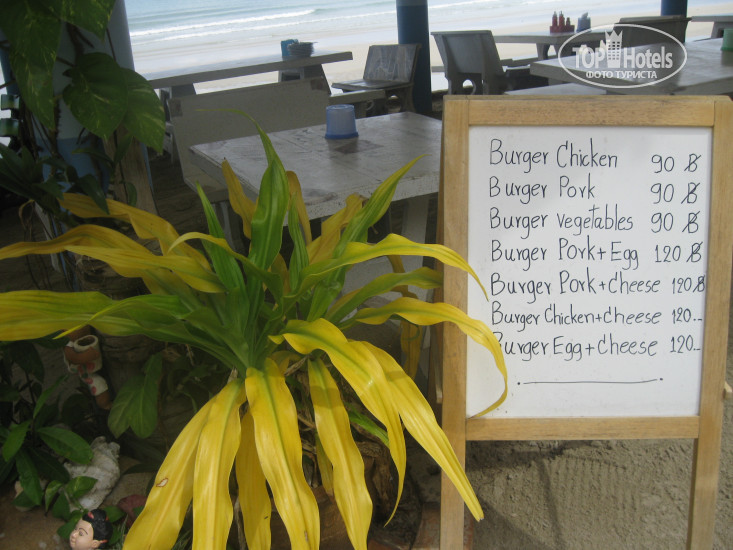 TopHotels
ФОТО ТУРИСТА
Burger Chicken 90 ฿
Burger Pork 90 ฿
Burger vegetables 90 ฿
Burger Pork+Egg 120 ฿
Burger Pork+Cheese 120 ฿
Burger Chicken+Cheese 120..
Burger Egg+Cheese 120..